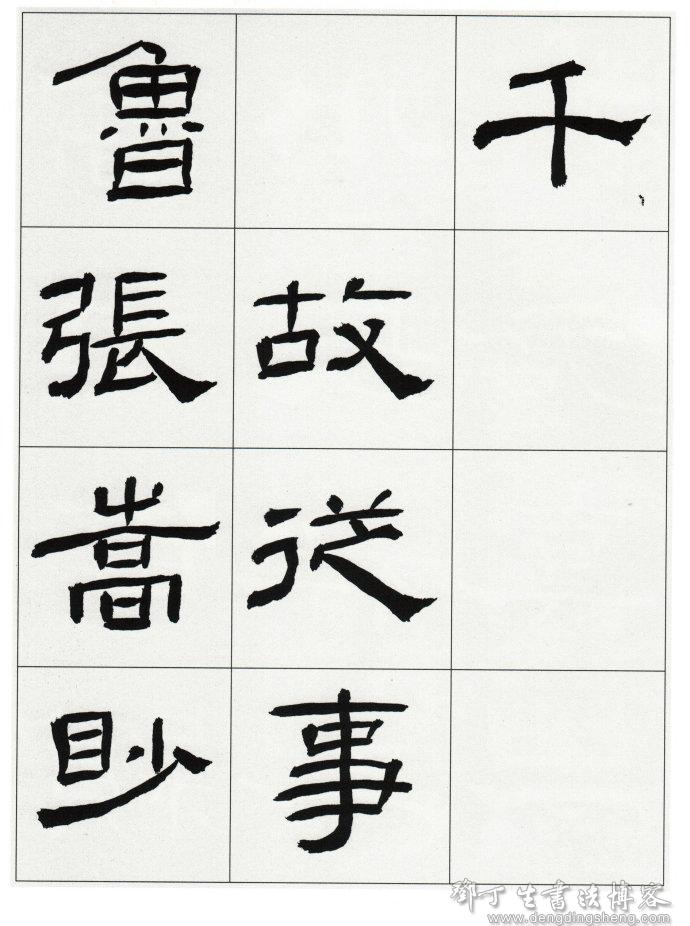 千
故從事
魯張嵩眇
鄧丁生書法博客
www.dengdingsheng.com